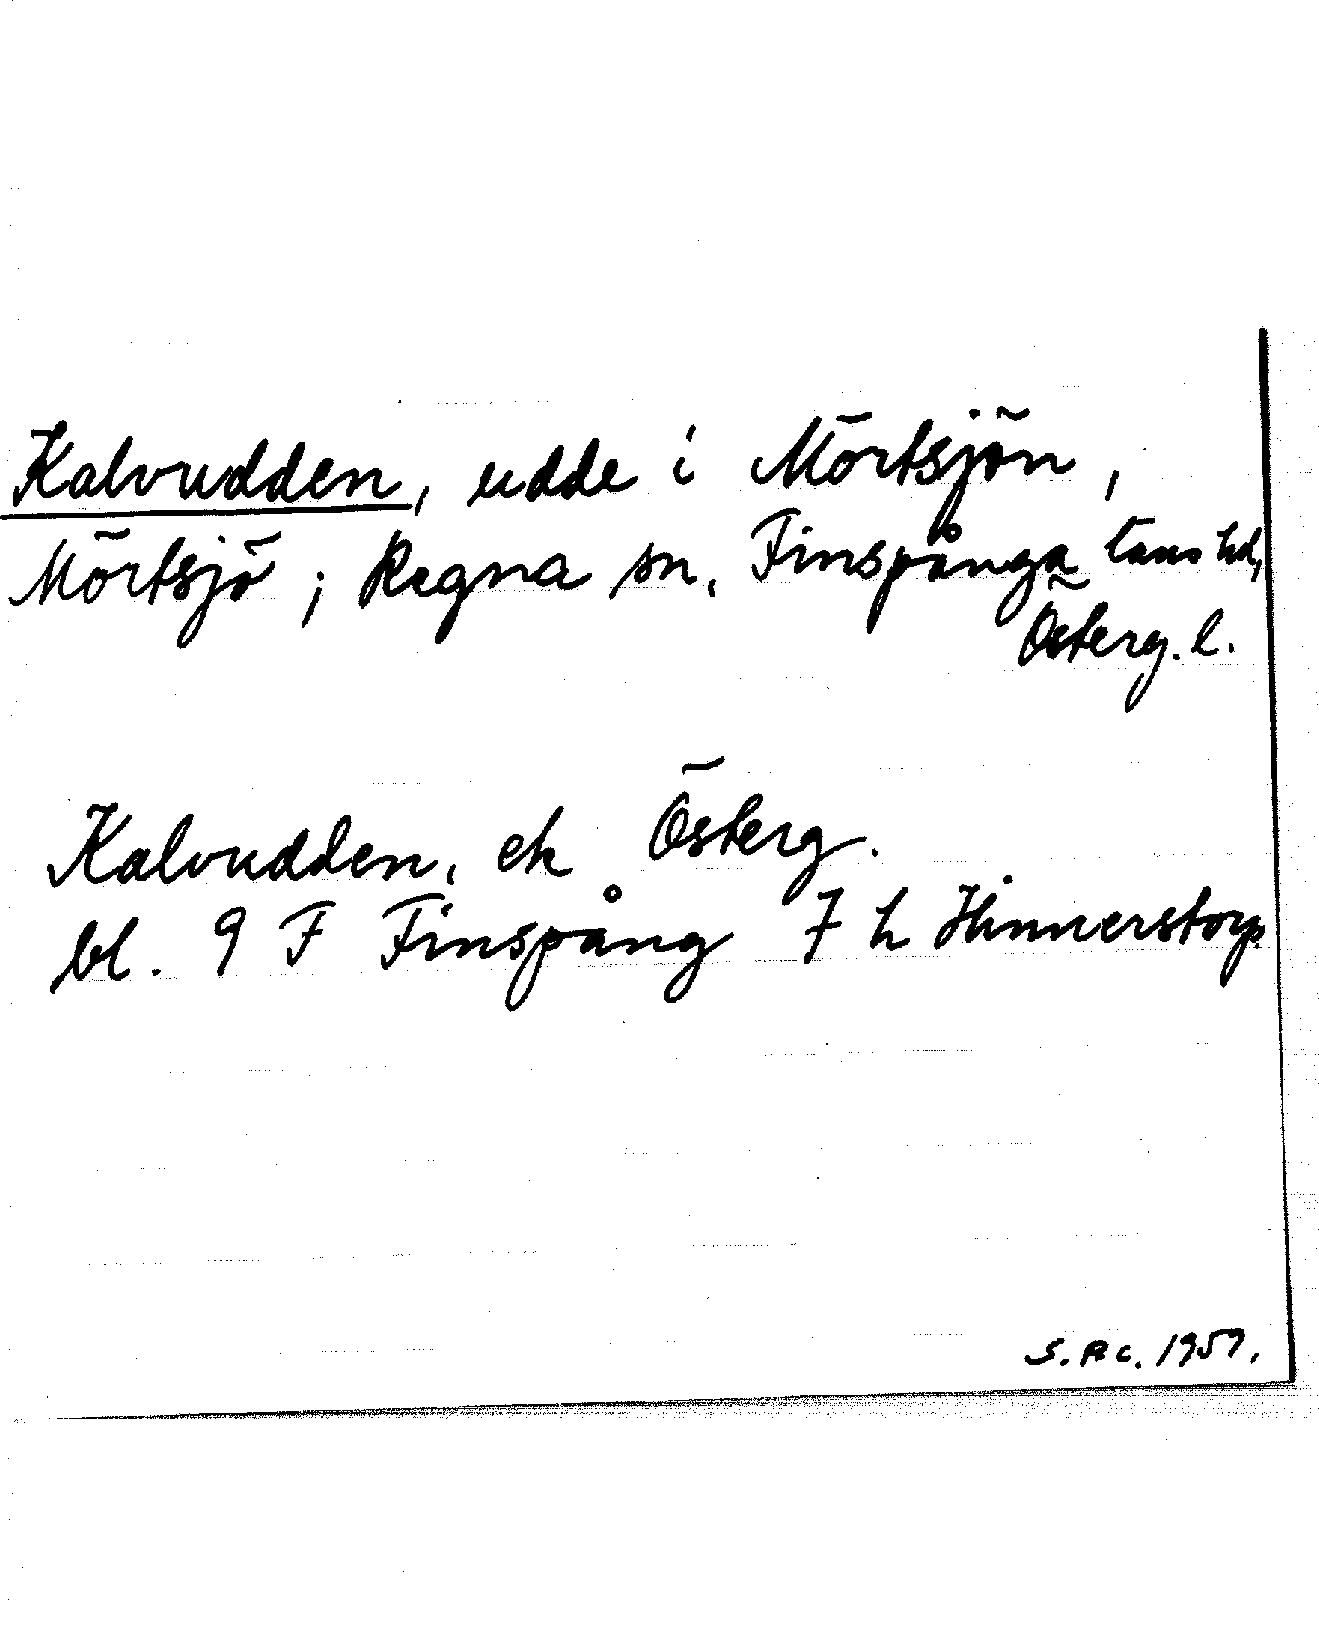 Kalvudden, udde i Mörtsjön,
Mörtsjö; Regna sn, Finspånga läns hd,
Österg. l.
Kalvudden, ek Österg.
bl. 9 F Finspång 7 h Hinnerstorp
S.Ac. 1959.